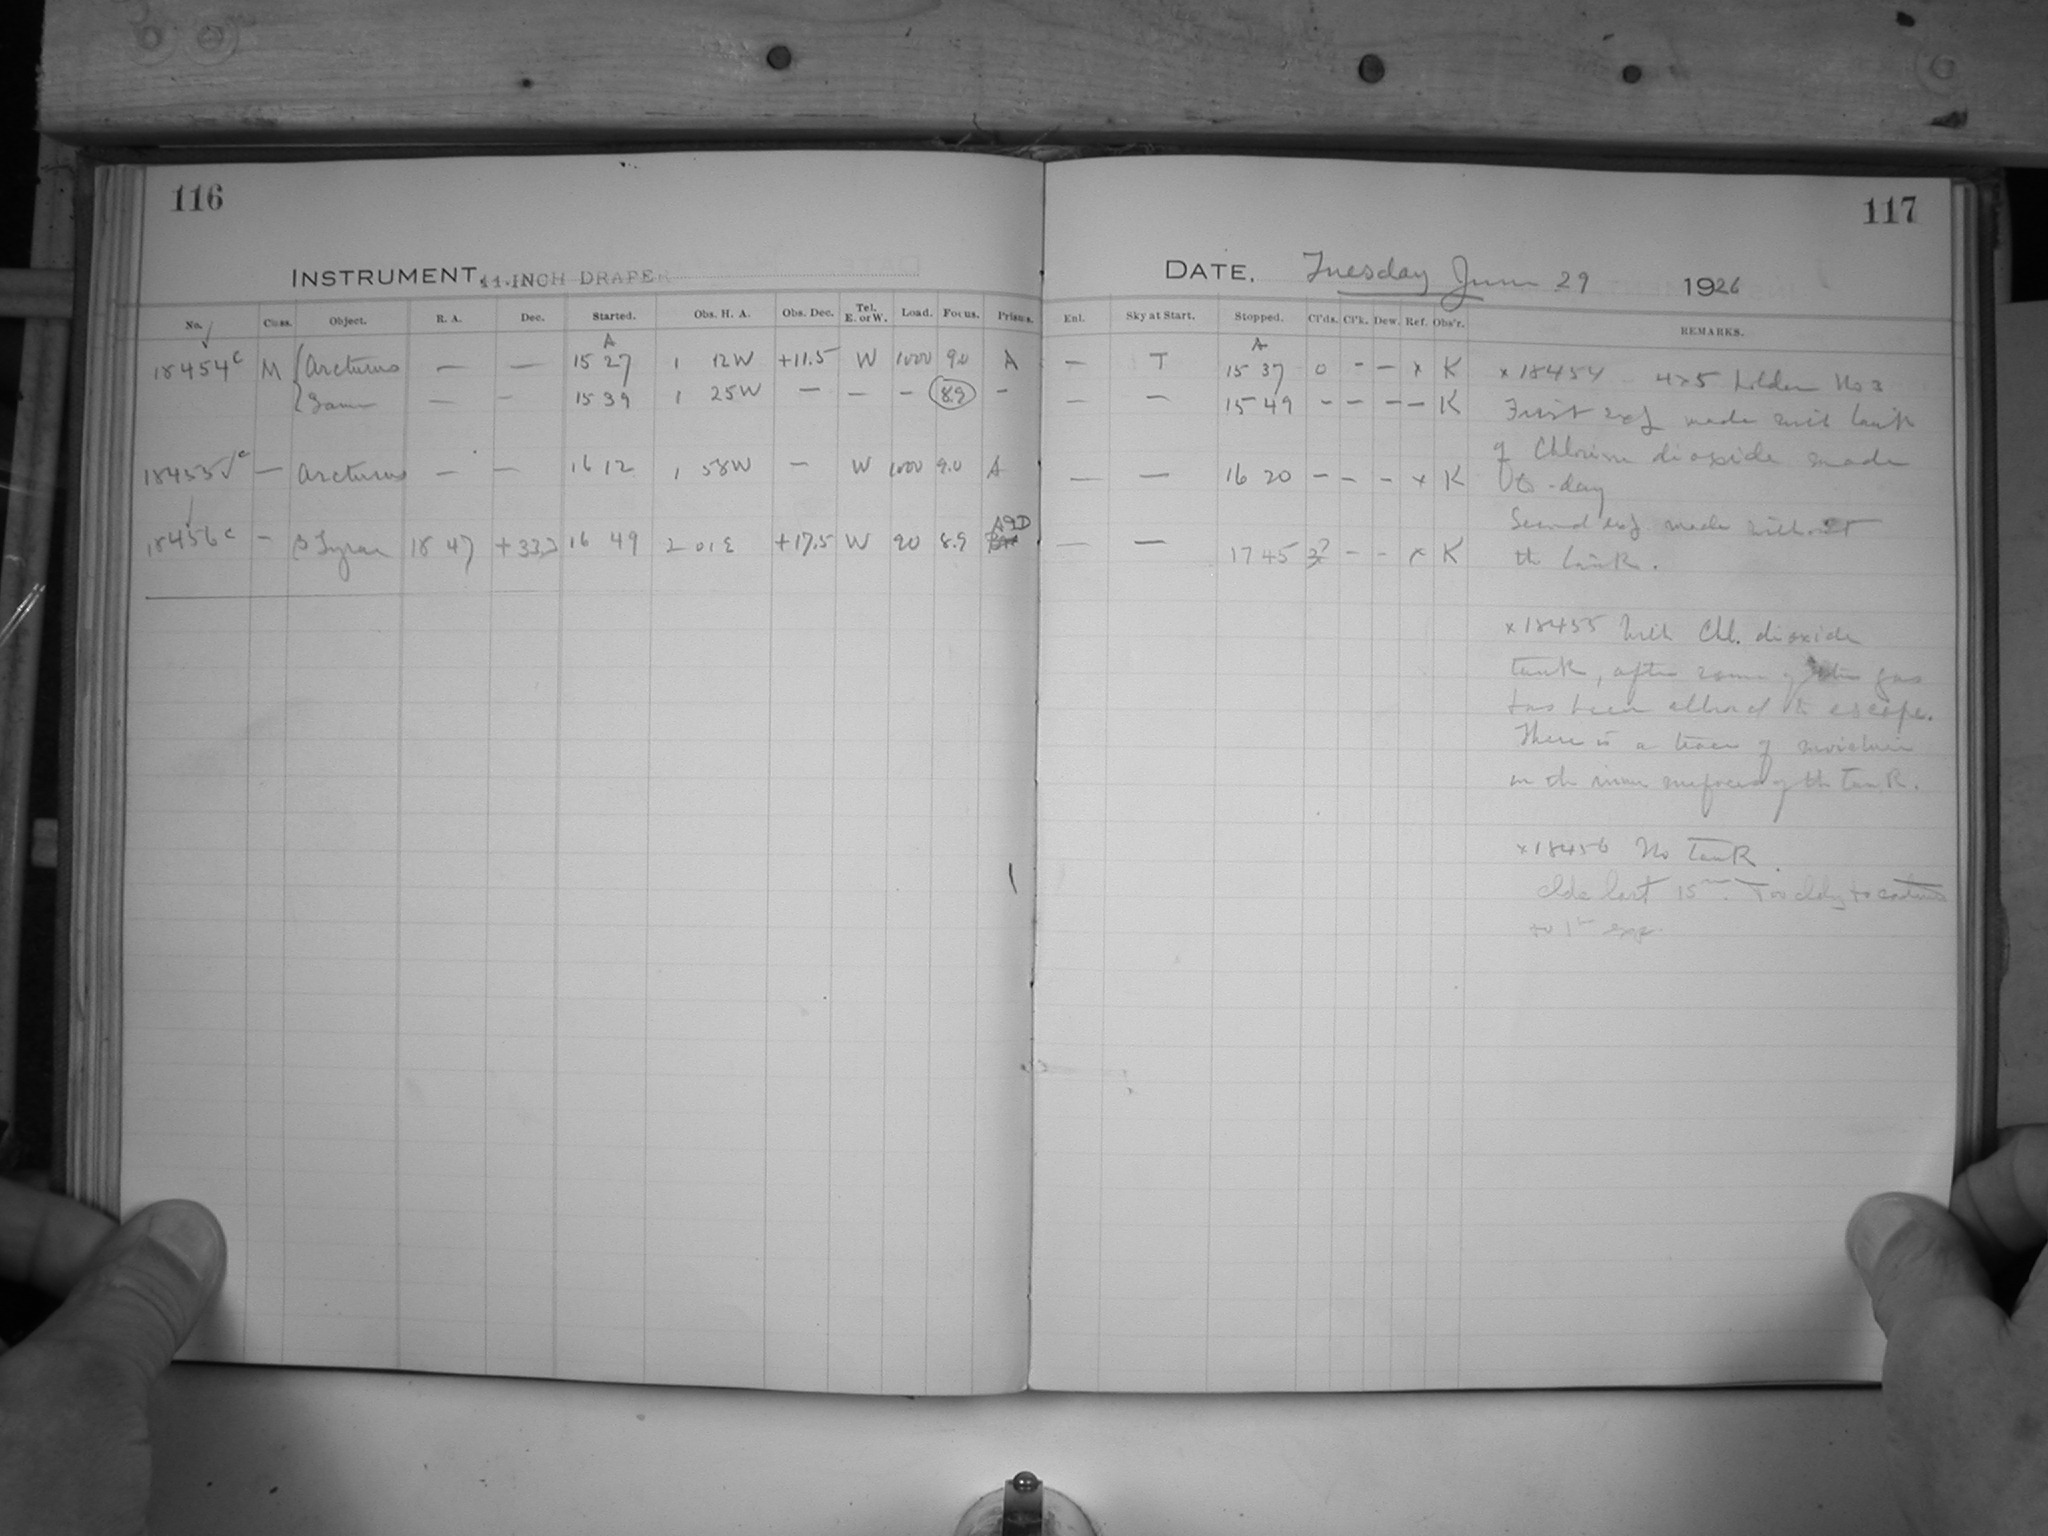 116
INSTRUMENT. 11-INCH DRAPER
No. Class. Object. R. A. Dec. Started. Obs. H. A. Obs. Dec. Tel. E. or W. Load. Focus. Prisms.
A
18454 c M Arcturus — — 15 27 1 12W +11.5 W 1000 9.0 A
Same — — 15 39 1 25W — — — 8.9 —
18455 c — Arcturus — — 16 12 1 58W — W 1000 9.0 A
18456 c — β Lyrae 18 47 +33.3 16 49 2 01E +17.5 W 90 8.9
117
DATE. Tuesday June 29 1926
Enl. Sky at Start. Stopped. Cl'ds. Cl'k. Dew. Ref. Obs'r. REMARKS.
A
— T 15 37 0 - — x K
— — 15 49 - — — — K
— — 16 20 - - - x K
— — 17 45 3? - - x K
x 18454 4x5 holder No 3
First exp made with tank
of Chlorine dioxide made
to-day
Second exp. made without
the tank.
x 18455 With Chl. dioxide
tank, after some of the gas
has been allowed to escape.
There is a trace of moisture
on the inner surfaces of the tank.
x 18456 No tank.
Clds last 15m. Too cldy to continue
to 1h exp.